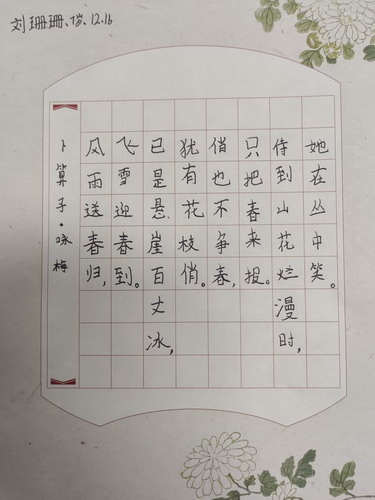 刘珊珊、7岁、12.16
卜算子·咏梅
风雨送春归,
飞雪迎春到。
已是悬崖百丈冰,
犹有花枝俏。
俏也不争春,
只把春来报。
待到山花烂漫时,
她在丛中笑。